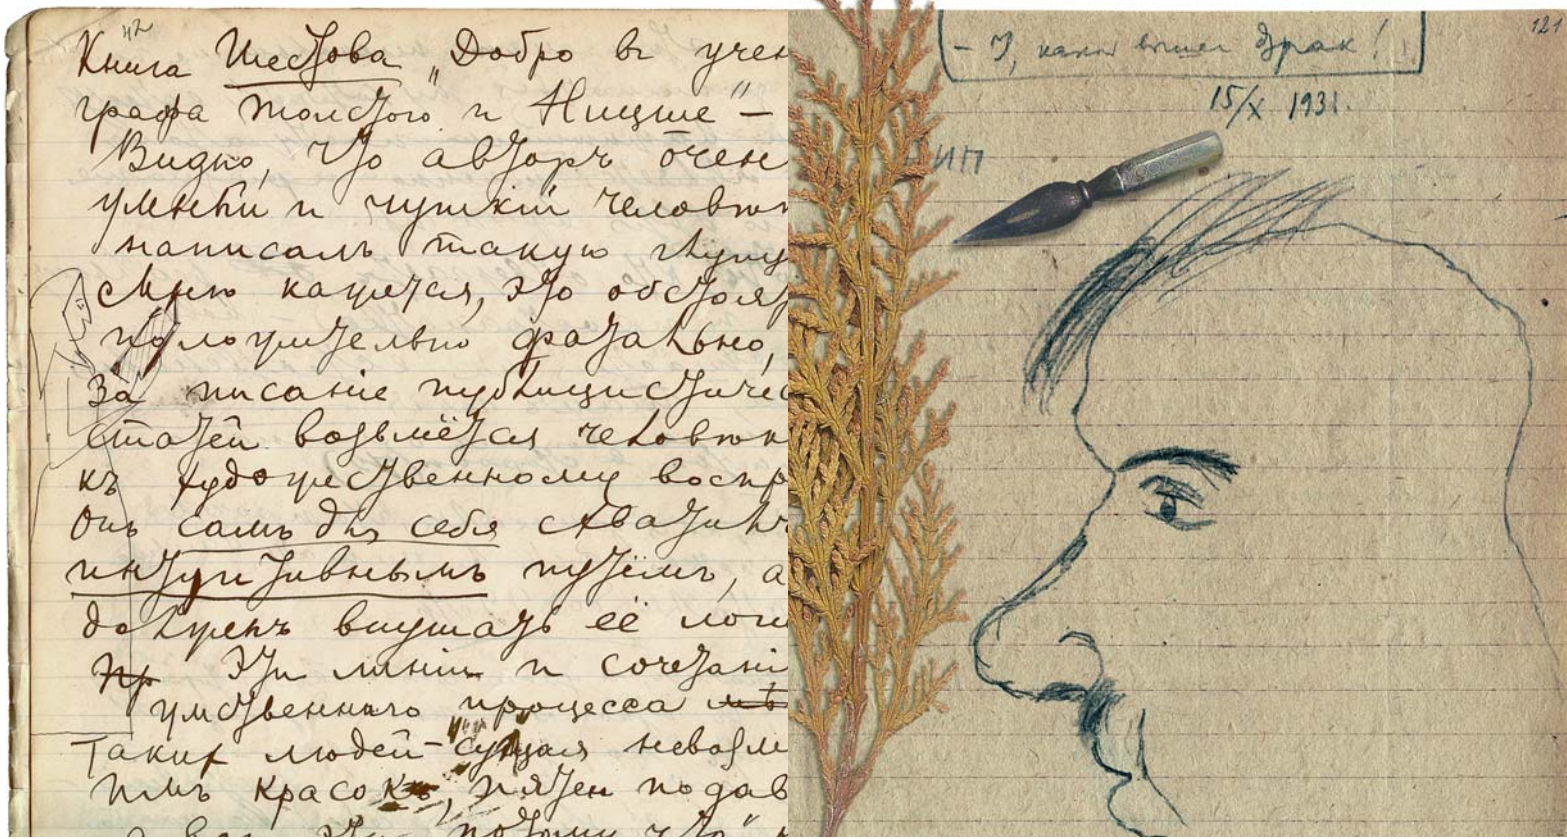 42
Книга Шестова „Добро въ учен
графа Толстого и Ницше" —
Видно, что авторъ очен
умный и чуткій человѣк
написалъ такую глупу
Мнѣ кажется, это обстоят
положительно фатально,
За писаніе публицистичес
статей возьмётся человѣк
къ художественному воспр
Онъ самъ для себя схватилъ
интуитивнымъ путёмъ, а
долженъ внушать её логи
Пр Эти линіи и сочетані
умственнаго процесса
Такихъ людей — сущая невозм
красокъ, пятен подав
121
15/X 1931.
ИП